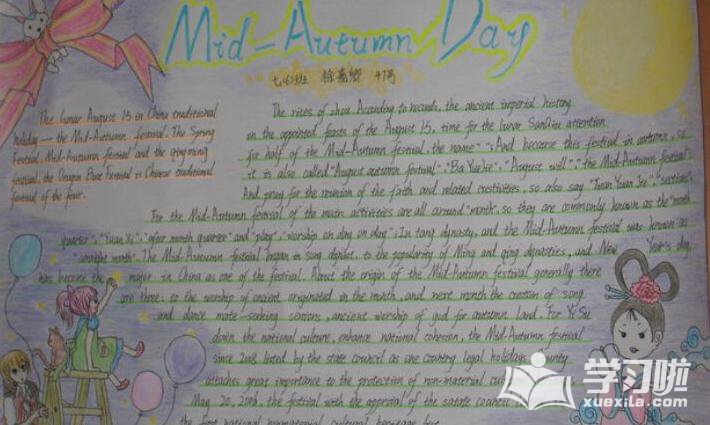 Mid-Autumn Day
七(5)班 徐嘉卿 47号
The lunar August 15 in China traditional
holiday — the Mid-Autumn festival. The Spring
Festival, Mid-Autumn festival and the qingming
festival, the Dragon Boat Festival is Chinese traditional
festival of the four.
The rites of zhou According to records, the ancient imperial history
on the appointed feasts of the August 15, time for the lunar attention
for half of the Mid-Autumn Festival, the name And because this festival in autumn, so
it is also called "August autumn festival", "Ba Yue Jie", "August will", "the Mid-Autumn festival"
And pray for the reunion of the faith and related so also say "Tuan Yuan Jie",
For the Mid-Autumn festival of the main activities are all around "month", so they are commonly known as the "month
quarter", "Yue Xi", and "play", "worship on day In tang dynasty, and the Mid-Autumn festival was known as
the month". The Mid-Autumn festival began in song to the popularity of Ming and qing dynasties, and New Year's day
has become the major in China as one of the festival. About the origin of the Mid-Autumn festival generally there
are three: to the worship of ancient originated in the month, and were month the custom of song
and dance mate-seeking ancient worship of god for autumn land. For
down the national culture, enhance national cohesion, the Mid-Autumn festival
since 2008 listed by the state council as one country legal holidays.
attaches great importance to the protection of non-material
May 20, 2006, the festival with the approval of the council
the first national cultural heritage
学习啦
www.xuexila.com